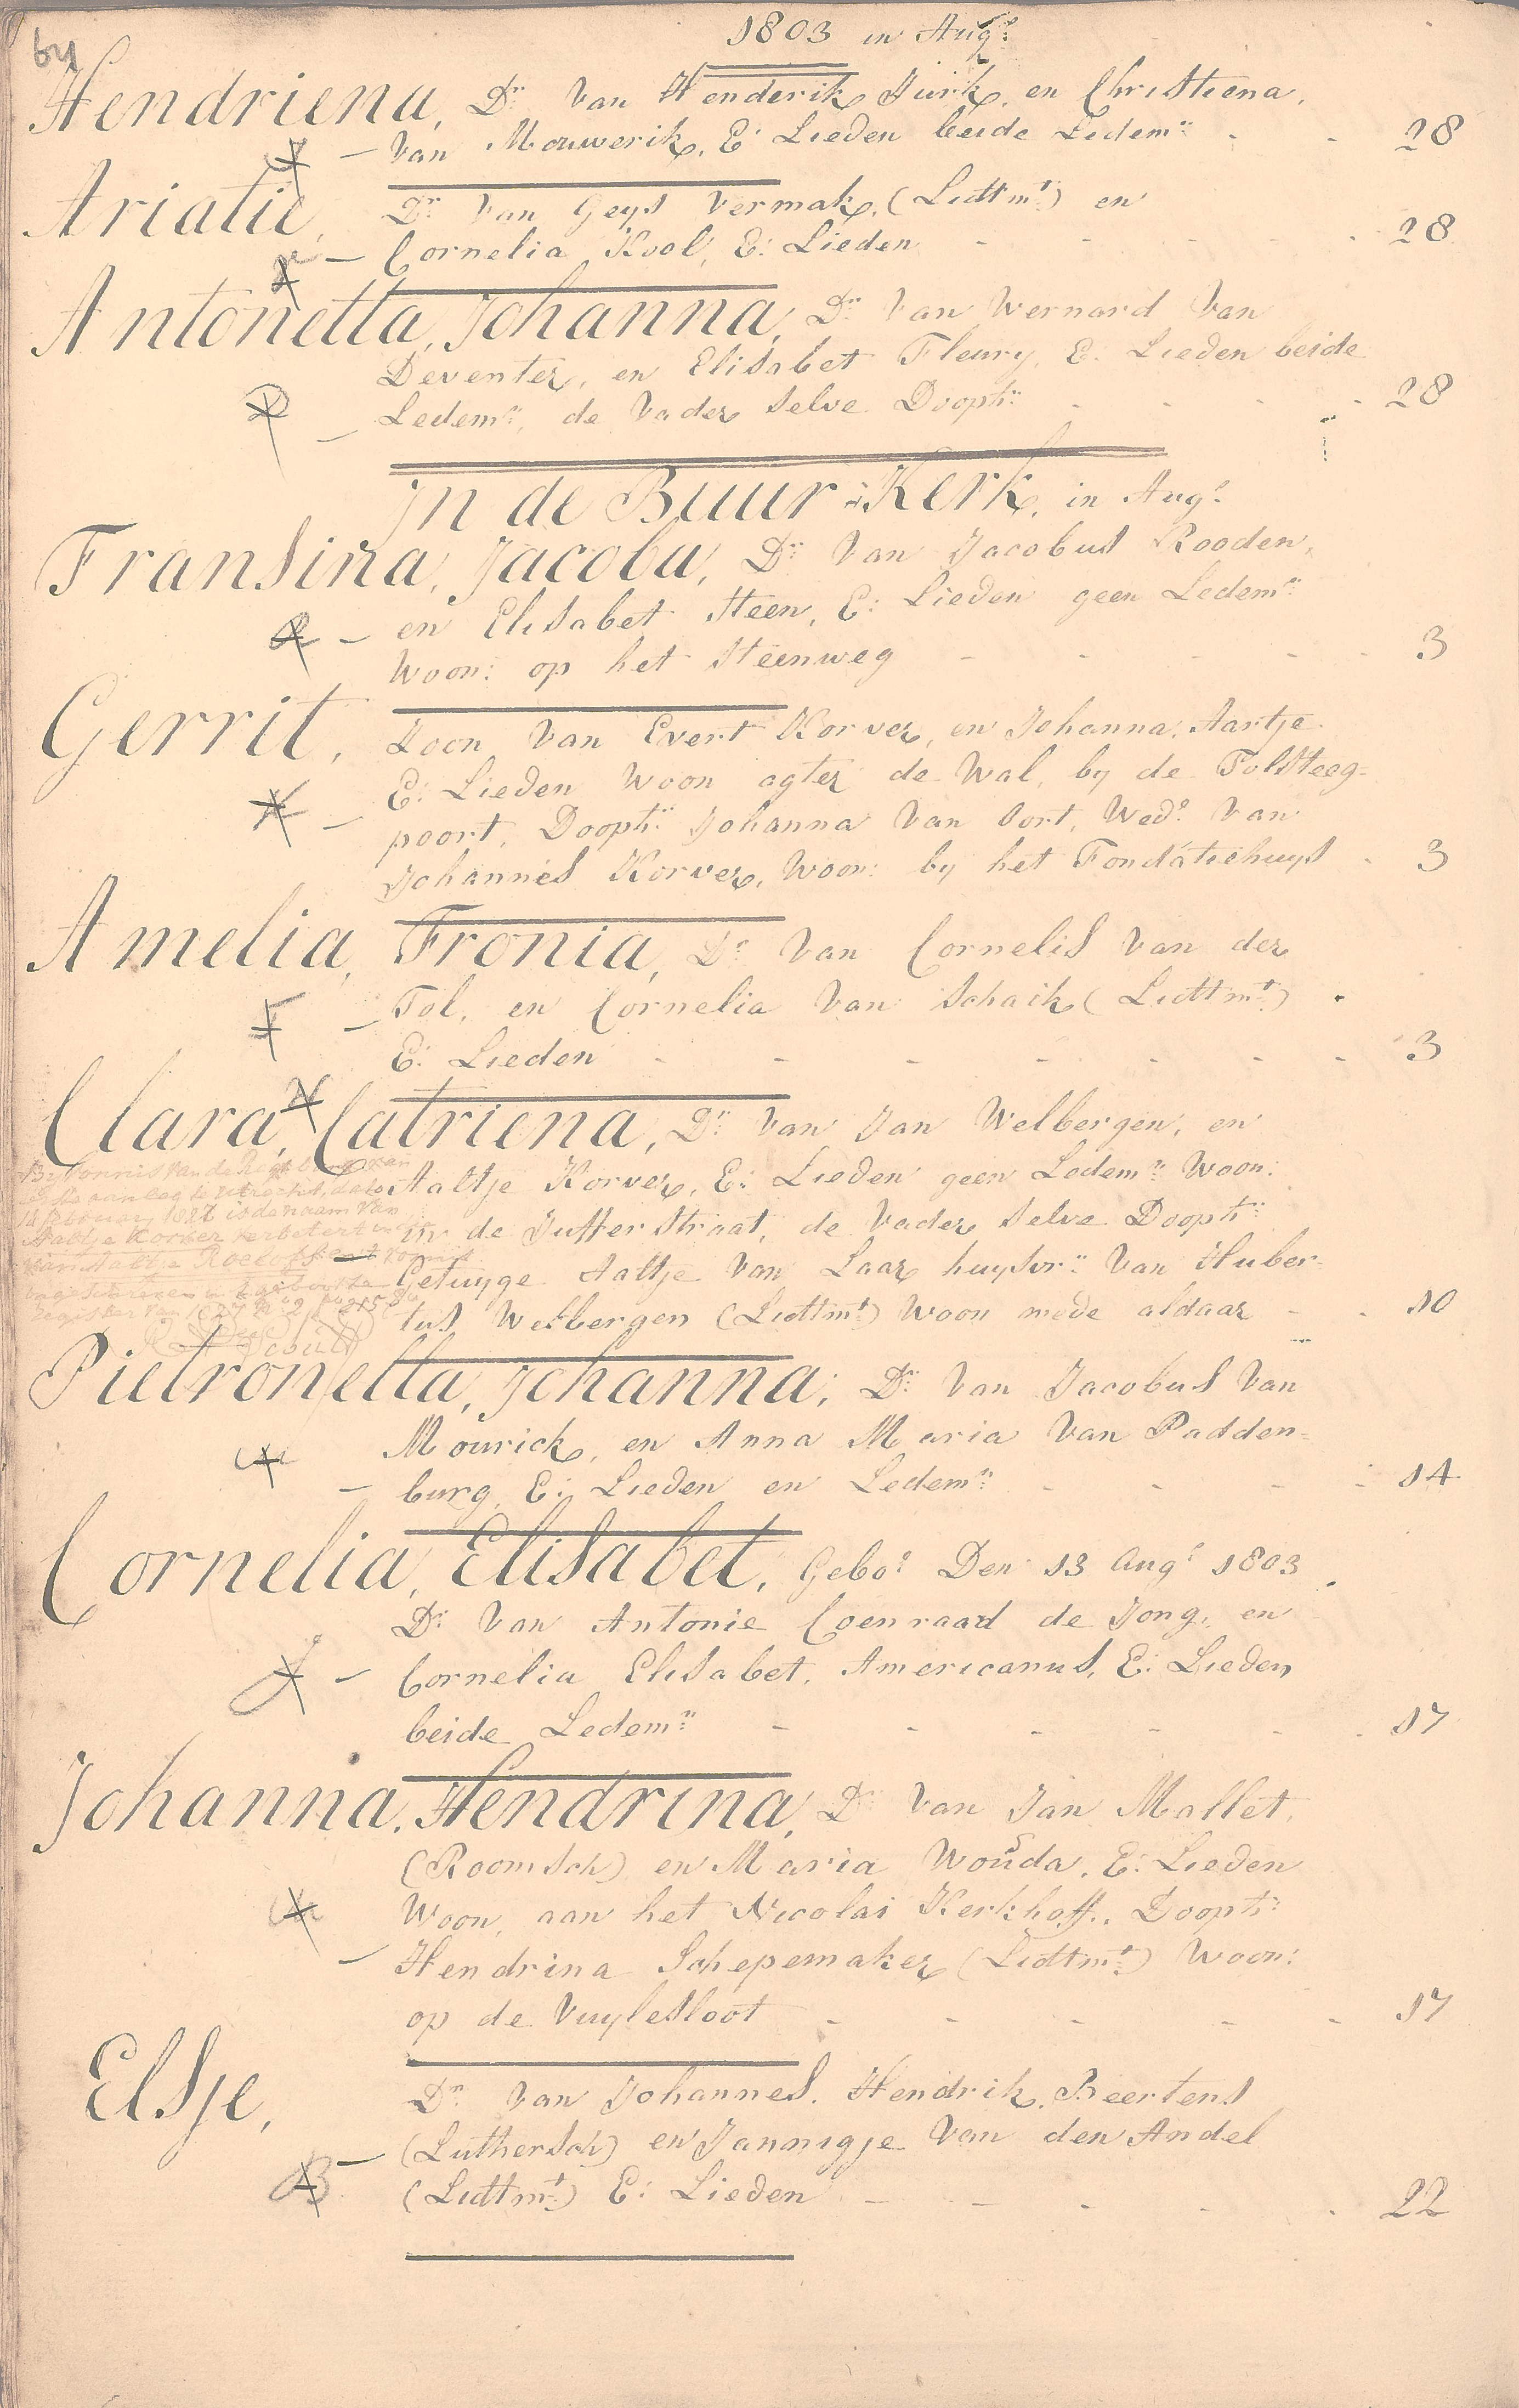 64
1803 in Augs
Hendriena, Dr van Henderik Jurk, en Christiena,
van Mouwerik, E: Lieden beide Ledemn - - 28
Ariatie, Dr van Geys Vermak, (Lidtmt) en
Cornelia Kool, E: Lieden - - - - 28
Antonetta, Johanna, Dr van Wernard van
Deventer, en Elisabet Fleury, E: Lieden beide
Ledemn, de Vader selve Dooptr - - - 28
Jn de Buur-Kerk, in Augs
Fransina, Jacoba, Dr van Jacobus Rooden,
en Elisabet Steen, E: Lieden geen Ledemn
Woon: op het Steenweg - - - - 3
Gerrit, Zoon van Evert Korver, en Johanna, Aartje
E: Lieden Woon agter de Wal, by de Tolsteeg-
poort, Dooptr Johanna van Oort, Wede van
Johannes Korver, Woon: by het Fondatiehuys - 3
Amelia, Fronia, Dr van Cornelis van der
Tol, en Cornelia van Schaik (Lidtmt)
E: Lieden - - - - - - - 3
Clara, Catriena, Dr van Jan Welbergen, en
Aaltje Korver, E: Lieden geen Ledemn Woon:
in de Jufferstraat, de Vader selve Dooptr
Getuyge Aaltje van Laar huysvr van Huber-
tus Welbergen (Lidtmt) Woon mede aldaar - - 10
By Vonnis van de Regtbank van
aanleg te Utrecht, dato
14 february 1827 is de naam van
Aaltje Korver verbetert in
van Aaltje Roelofsen
register van 1827
Pietronella, Johanna, Dr van Jacobus van
Mourick, en Anna Maria van Padden-
burg, E: Lieden en Ledemn - - - - 14
Cornelia, Elisabet, Gebo: Den 13 Augs 1803
Dr van Antonie Coenraad de Jong, en
Cornelia Elisabet, Americanus, E: Lieden
beide Ledemn - - - - - - 17
Johanna, Hendrina, Dr van Jan Mallet,
(Roomsch) en Maria Wouda, E: Lieden
Woon, aan het Nicolai Kerkhoff, Dooptr
Hendrina Schepemaker (Lidtmt) Woon:
op de Vuylesloot - - - - - 17
Elsje, Dr van Johannes, Hendrik, Beertens
(Luthersch) en Jannigje van den Andel
(Lidtmt) E: Lieden - - - - - 22